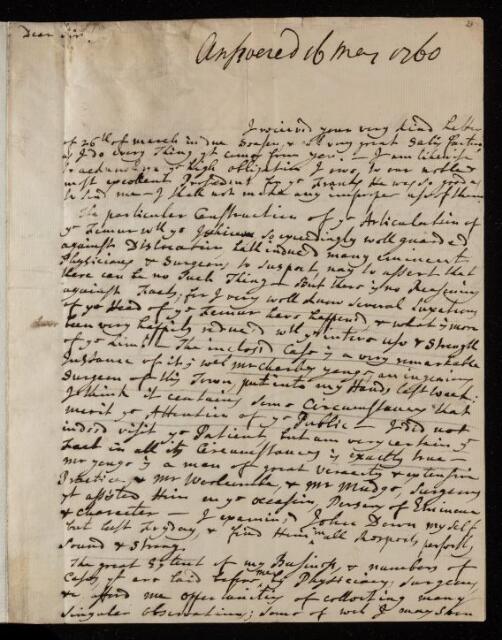 Dear Sir
Answered 16 May 1760
I received your very kind Letter
of 26th of march in due Season, & wth very great Satisfaction
as I do every Thing yt comes from you: – I am likewise
to acknowledge ye high obligation I owe to our noble &
most excellent President for ye Franks He was so good as
to send me – I shall not make any improper use of them
The particular Construction of ye Articulation of
ye Femur wth ye Ischium so exceedingly well guarded
against Dislocation hath induced many eminent
Physicians & Surgeons to suspect, nay to assert that
there can be no Such Thing – But there is no Reasoning
against Facts; for I very well know Several Luxations
of ye Head of ye Femur have happend & what is more
been very happily reduced wth ye intire use & Strength
of ye Limb – The inclosed Case is a very remarkable
Instance of it; wch mr Charles yonge an ingenious
Surgeon of this Town, put into my Hands last week;
I think it contains some Circumstances that
merit ye Attention of ye Public – I did not
indeed visit ye Patient, but am very certain ye
Fact in all its Circumstances is exactly true –
mr yonge is a man of great veracity & extensive
Practice, & Mr Woolcombe, & mr Mudge, Surgeons
yt assisted Him on ye occasion, Persons of Eminence
& character – I examined John Down myself
but last Fryday, & find Him in all Respects perfectly
Sound & Strong.
The great Extent of my Business, & numbers of
Cases yt are laid before me by Physicians, Surgeons,
&c afford me opportunities of collecting many
Singular observations; some of wch I may soon